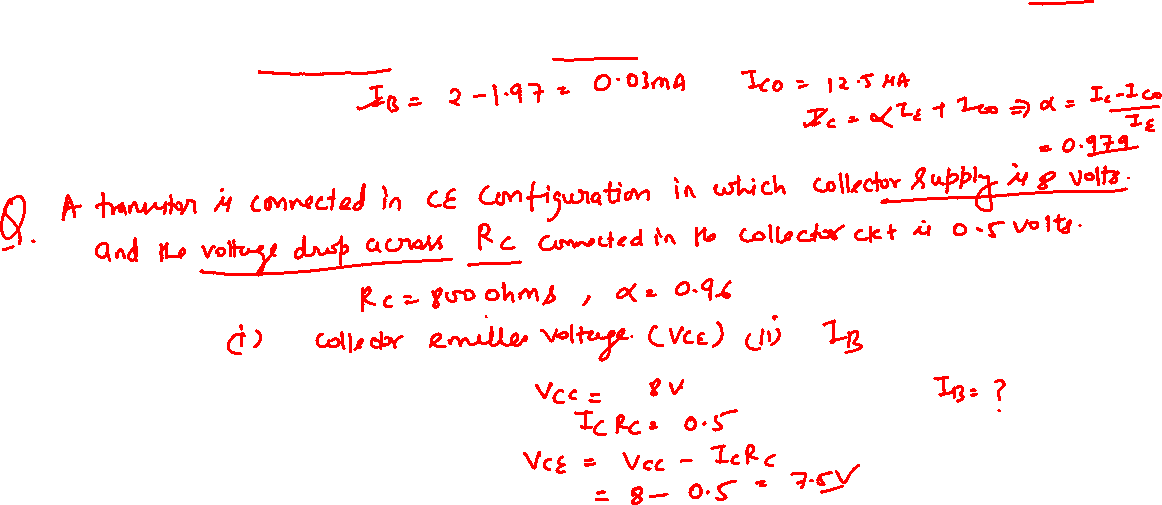 I_B = 2 - 1.97 = 0.03mA I_CO = 12.5 µA
I_C = αI_E + I_CO ⇒ α = (I_C - I_CO)/I_E
= 0.979
Q. A transistor is connected in CE Configuration in which collector supply is 8 volts.
and the voltage drop across R_C connected in the collector ckt is 0.5 volts.
R_C = 800 ohms, α = 0.96
(i) collector emitter voltage. (V_CE) (ii) I_B
V_CC = 8V I_B = ?
I_C R_C = 0.5
V_CE = V_CC - I_C R_C
= 8 - 0.5 = 7.5V